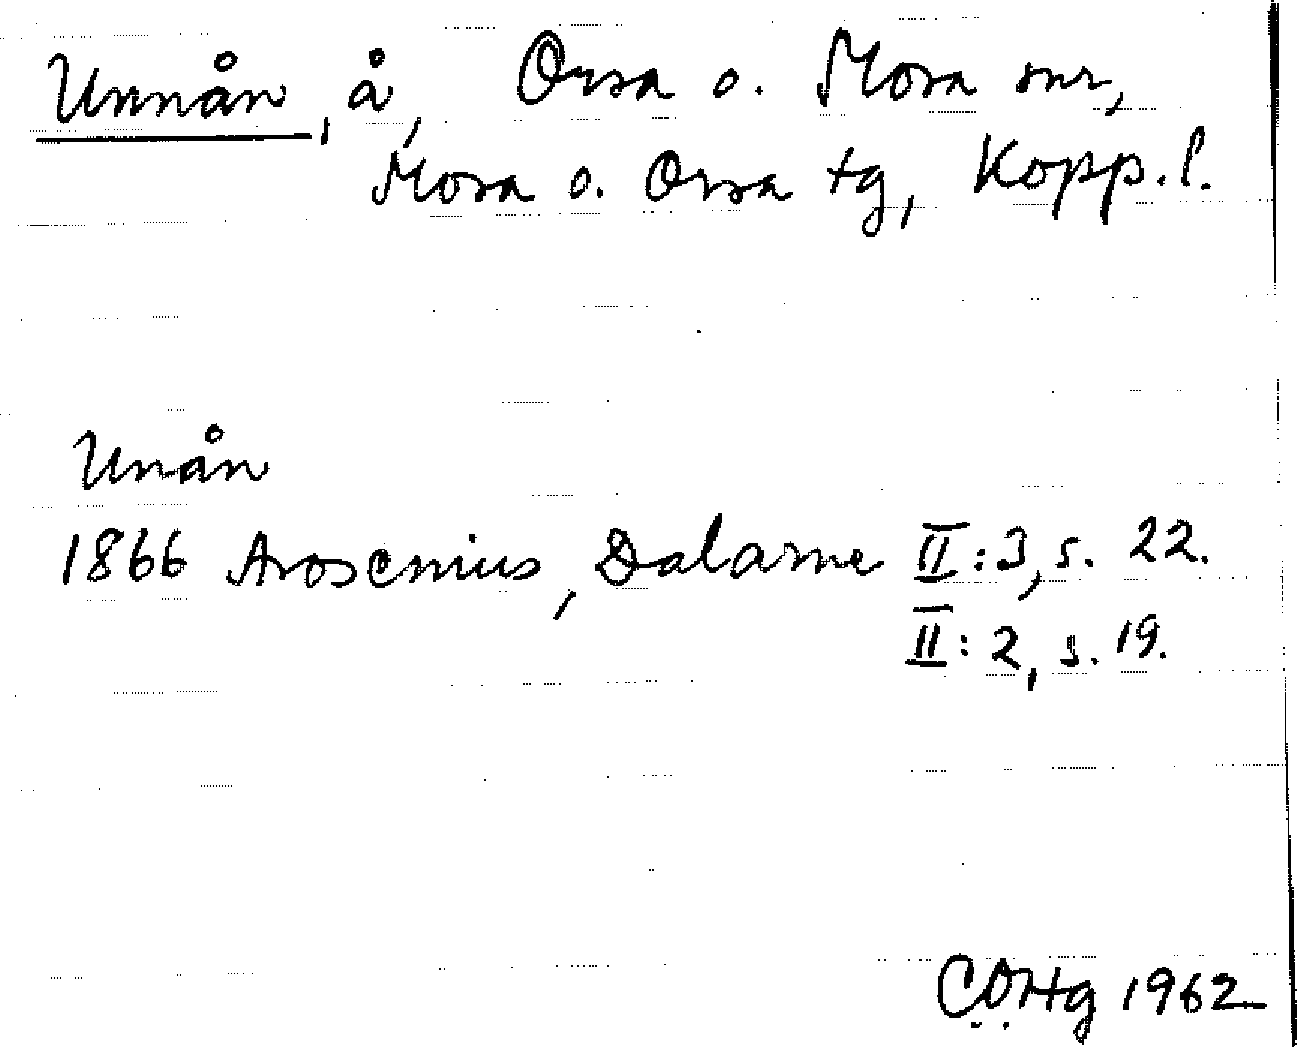 Unnån, å, Orsa o. Mora snr,
Mora o. Orsa tg, Kopp.l.
Unån
1866 Arosenius, Dalarne II:3, s. 22.
II:2, s. 19.
COHg 1962